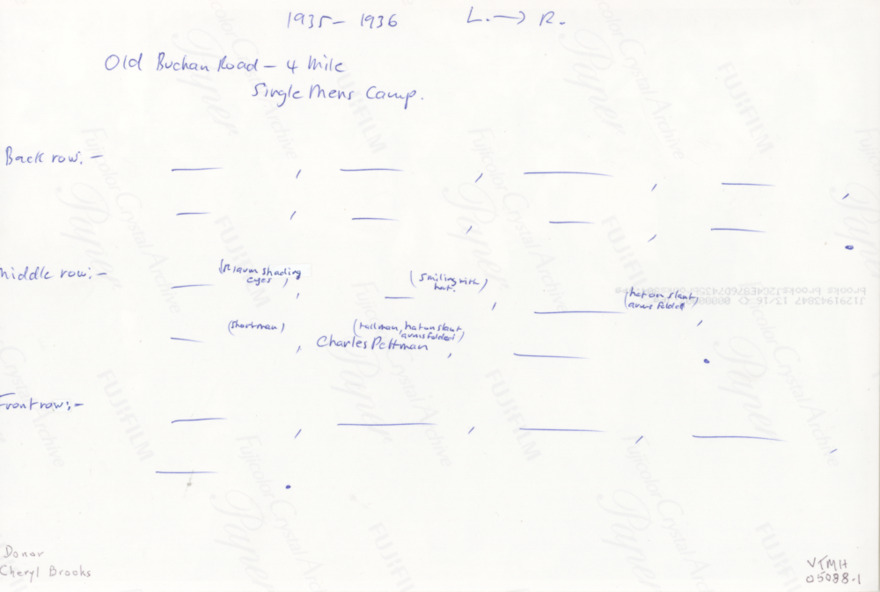 1935 - 1936 L. → R.
Old Buchan Road - 4 Mile
Single Mens Camp.
Back row: - ____ , ____ , ____ , ____ ,
____ , ____ , ____ , ____ .
Middle row: - ____ (R arm shading eyes) , ____ (smiling with hat.) , ____ (hat on slant, arms folded) ,
____ (short man) , Charles Pettman (tall man, hat on slant, arms folded) , ____ .
Front row: - ____ , ____ , ____ , ____ ,
____ .
Donor
Cheryl Brooks
VTMH
05088-1
FUJIFILM
Fujicolor Crystal Archive
Paper